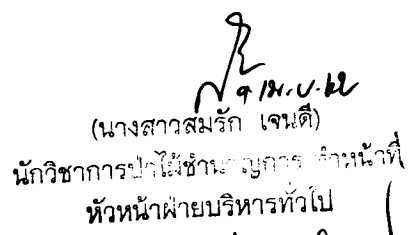 ๑ เม.ย. ๖๒
(นางสาวสมรัก เจนดี)
นักวิชาการป่าไม้ชำนาญการ ทำหน้าที่
หัวหน้าฝ่ายบริหารทั่วไป